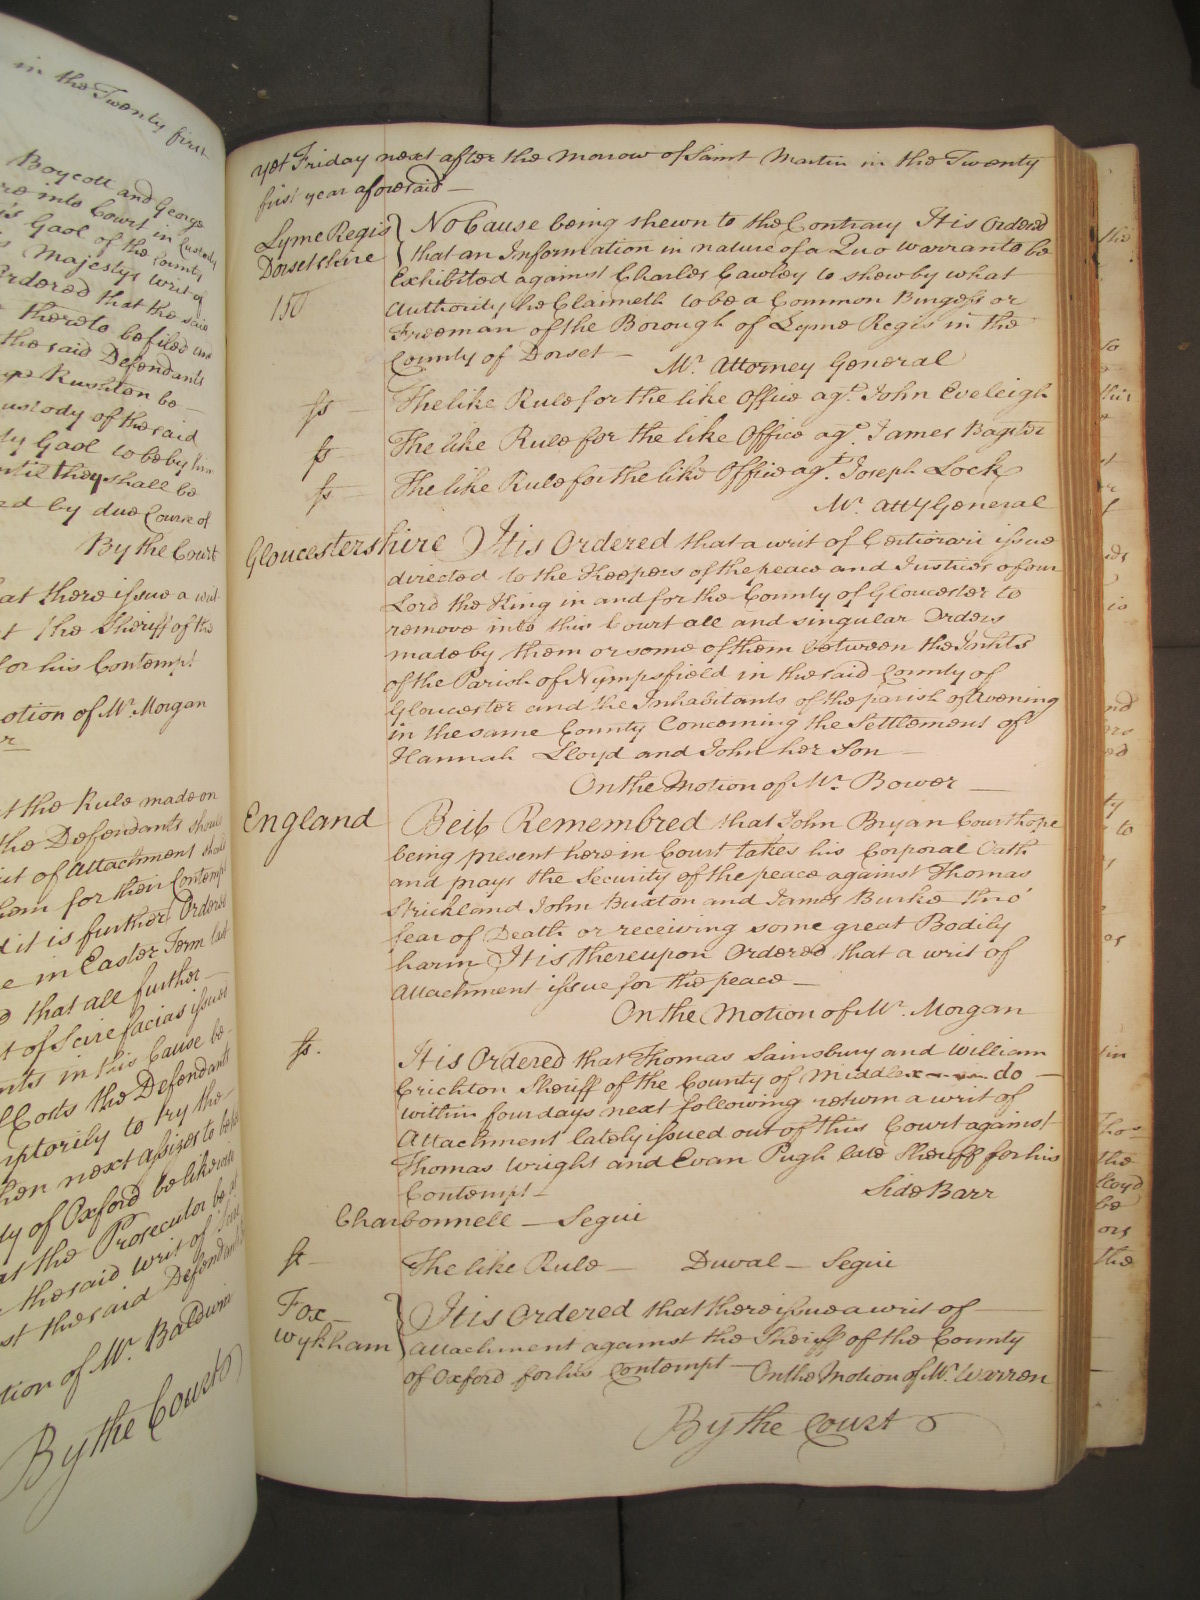 in the Twenty first
Boycott and George
into Court in Custody
Gaol of the County
Majestys writ of
Ordered that the said
thereto be filed and
the said Defendants
Rushton be
Custody of the said
Gaol to be by him
until they shall be
by due Course of
By the Court
that there issue a writ
the Sheriff of the
for his Contempt
Motion of Mr. Morgan
the Rule made on
the Defendants should
of Attachment should
them for their Contempt
it is further Ordered
in Easter Term last
that all further
of Scire facias issued
in this Cause be
Costs the Defendant
to try the
next assizes to be
of Oxford be likewise
the Prosecutor
the said writ of Scire
the said Defendants
Motion of Mr. Baldwin
By the Court
yet Friday next after the Morrow of Saint Martin in the Twenty
first year aforesaid —
Lyme Regis } No Cause being shewn to the Contrary It is Ordered
Dorsetshire } that an Information in nature of a Quo warranto be
Exhibited against Charles Cawley to shew by what
150 Authority he Claimeth to be a Common Burgess or
Freeman of the Borough of Lyme Regis in the
County of Dorset — Mr. Attorney General
ss — The like Rule for the like Office agt. John Eveleigh
ss — The like Rule for the like Office agt. James Bagster
ss — The like Rule for the like Office agt. Joseph Lock
Mr. Atty General
Gloucestershire ) It is Ordered that a writ of Certiorari issue
directed to the Keepers of the peace and Justices of our
Lord the King in and for the County of Gloucester to
remove into this Court all and singular Orders
made by them or some of them between the Inhts
of the Parish of Nympsfield in the said County of
Gloucester and the Inhabitants of the parish of Avening
in the same County Concerning the Settlement of
Hannah Lloyd and John her Son —
On the Motion of Mr. Bower —
England Be it Remembred that John Bryan Courthope
being present here in Court takes his Corporal Oath
and prays the Security of the peace against Thomas
Strickland John Buxton and James Burke thro'
fear of Death or receiving some great Bodily
harm It is thereupon Ordered that a writ of
Attachment issue for the peace —
On the Motion of Mr. Morgan
ss. It is Ordered that Thomas Sainsbury and William
Crichton Sheriff of the County of Middlex do —
within four days next following return a writ of
Attachment lately issued out of this Court against
Thomas Wright and Evan Pugh late Sheriff for his
Contempt — Side Barr
Charbonnell — Segui
ss — The like Rule — Duval — Segui
Fox } It is Ordered that there issue a writ of —
Wykham } Attachment against the Sheriff of the County
of Oxford for his Contempt — On the Motion of Mr. Warren
By the Court